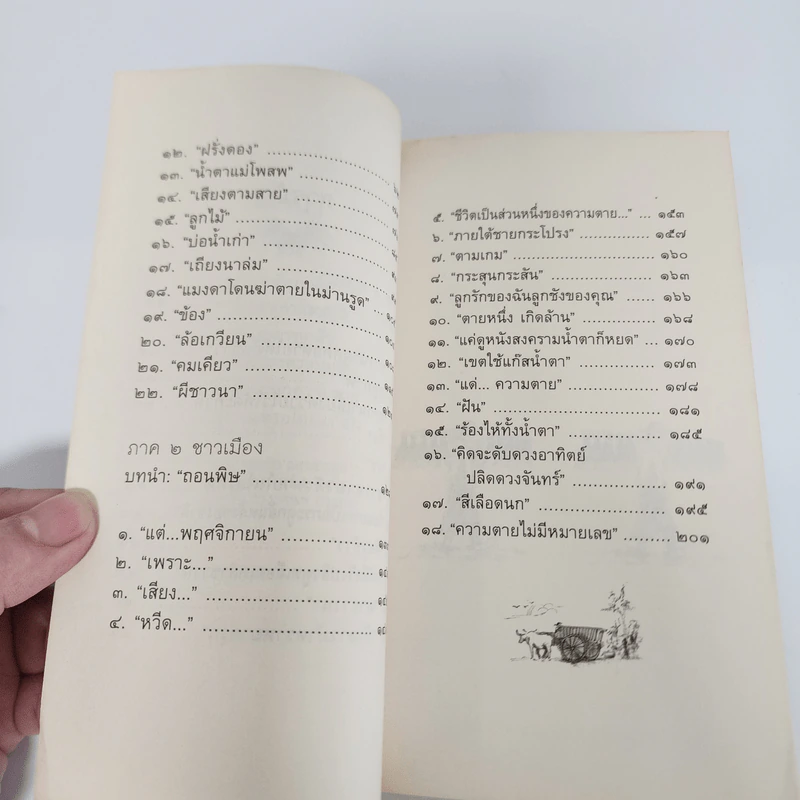 ๑๒. “ฝรั่งดอง”
๑๓. “น้ำตาแม่โพสพ”
๑๔. “เสียงตามสาย”
๑๕. “ลูกไม้”
๑๖. “บ่อน้ำเก่า”
๑๗. “เถียงนาล่ม”
๑๘. “แมงดาโดนฆ่าตายในม่านรูด”
๑๙. “ข้อง”
๒๐. “ล้อเกวียน”
๒๑. “คมเคียว”
๒๒. “ผีชาวนา”
ภาค ๒ ชาวเมือง
บทนำ: “ถอนพิษ”
๑. “แต่...พฤศจิกายน”
๒. “เพราะ...”
๓. “เสียง...”
๔. “หวีด...”
๕. “ชีวิตเป็นส่วนหนึ่งของความตาย...” ... ๑๕๓
๖. “ภายใต้ชายกระโปรง” ............... ๑๕๗
๗. “ตามเกม” ............................ ๑๖๐
๘. “กระสุนกระสัน” ..................... ๑๖๓
๙. “ลูกรักของฉันลูกชังของคุณ” ...... ๑๖๖
๑๐. “ตายหนึ่ง เกิดล้าน” ............... ๑๖๘
๑๑. “แค่ดูหนังสงครามน้ำตาก็หยด” .... ๑๗๐
๑๒. “เขตใช้แก๊สน้ำตา” ................ ๑๗๓
๑๓. “แด่... ความตาย” ................. ๑๗๘
๑๔. “ฝัน” ............................... ๑๘๑
๑๕. “ร้องไห้ทั้งน้ำตา” .................. ๑๘๕
๑๖. “คิดจะดับดวงอาทิตย์
ปลิดดวงจันทร์” ..................... ๑๙๑
๑๗. “สีเลือดนก” ........................ ๑๙๕
๑๘. “ความตายไม่มีหมายเลข” ......... ๒๐๑